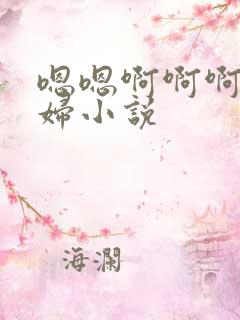 嗯嗯啊啊啊
婦小説
海瀾